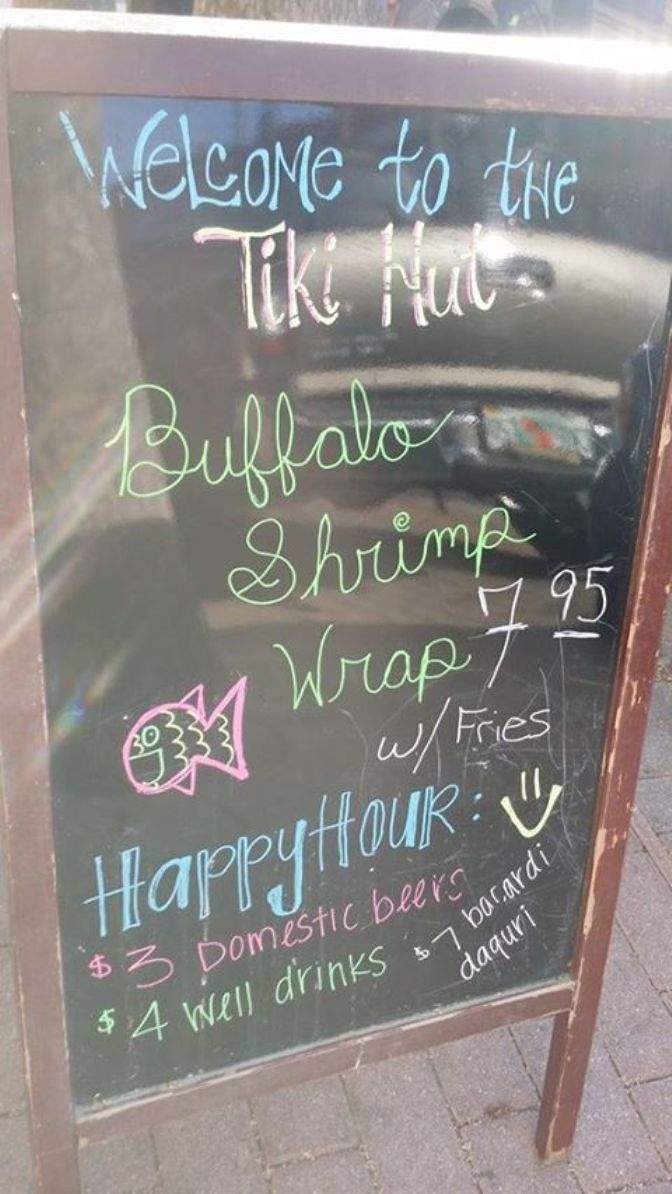 WELCOME to tHE
Tiki Hut
Buffalo
Shrimp
Wrap 7 95
w/ Fries
HAPPY HOUR:
$3 Domestic beers
$4 Well drinks
$7 bacardi
daquri